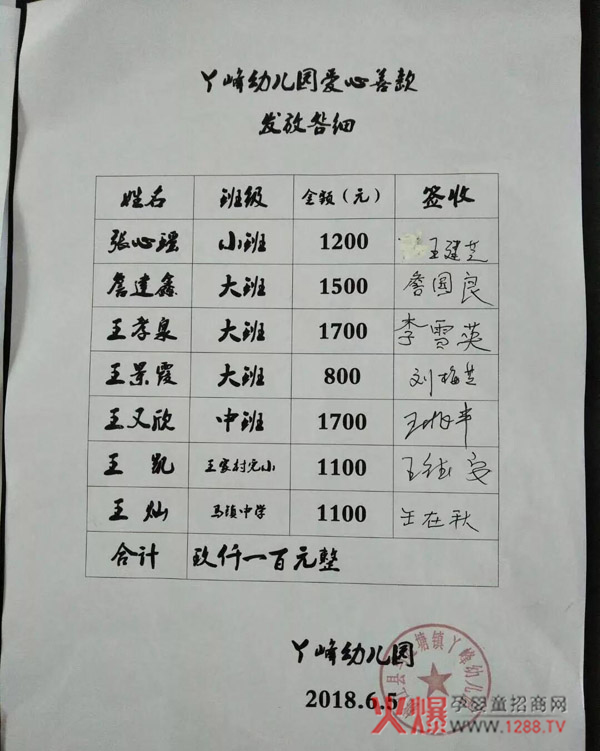 丫峰幼儿园爱心善款
发放明细
姓名 班级 金额（元） 签收
张心瑶 小班 1200 王建芝
詹建鑫 大班 1500 詹国良
王孝泉 大班 1700 李雪英
王景霞 大班 800 刘梅芝
王又欣 中班 1700
王凯 王家村完小 1100
王灿 马镇中学 1100 王在秋
合计 玖仟一百元整
丫峰幼儿园
2018.6.5
塘镇丫峰幼儿
火爆孕婴童招商网
www.1288.TV